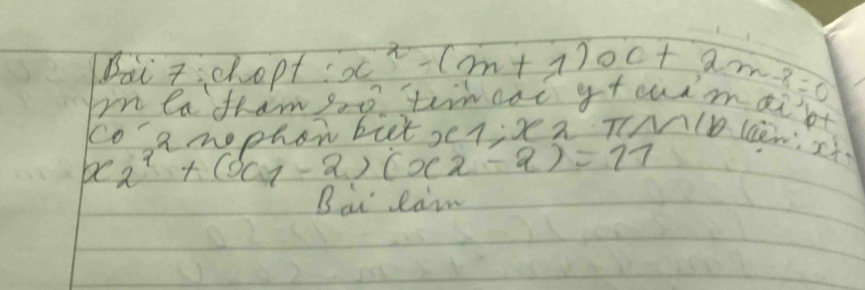 Bài 7: cho pt: x² - (m + 1)x + 2m - 8 = 0
m là tham số tìm các gt của m để pt
có 2 no phân biệt x1; x2 TM điều kiện: x1² +
x2² + (x1 - 2)(x2 - 2) = 11
Bài làm